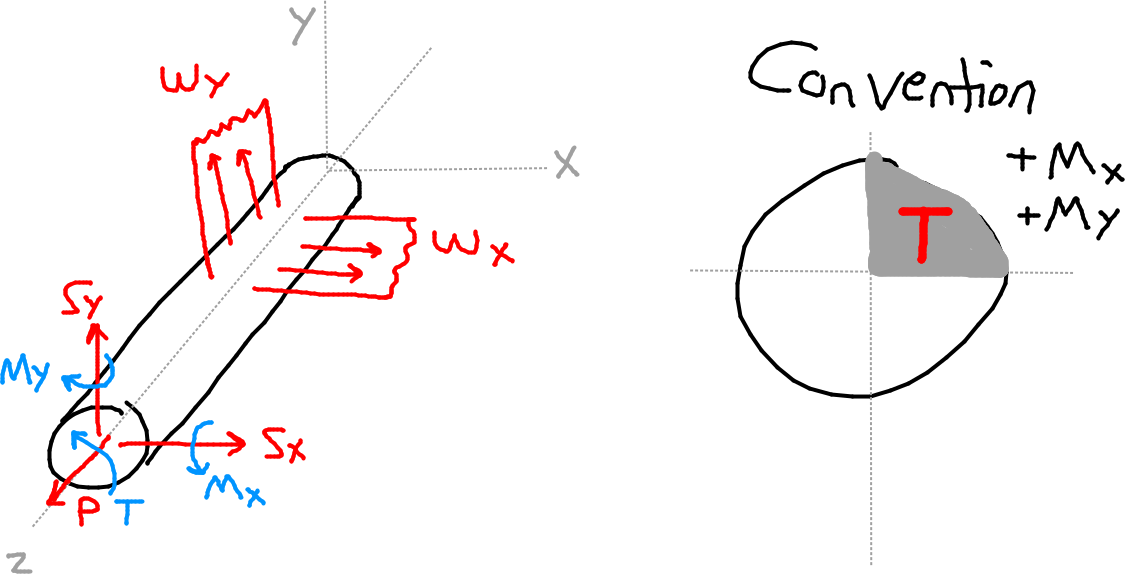 Y
Wy
X
Wx
Sy
My
Sx
Mx
P
T
Z
Convention
+Mx
+My
T